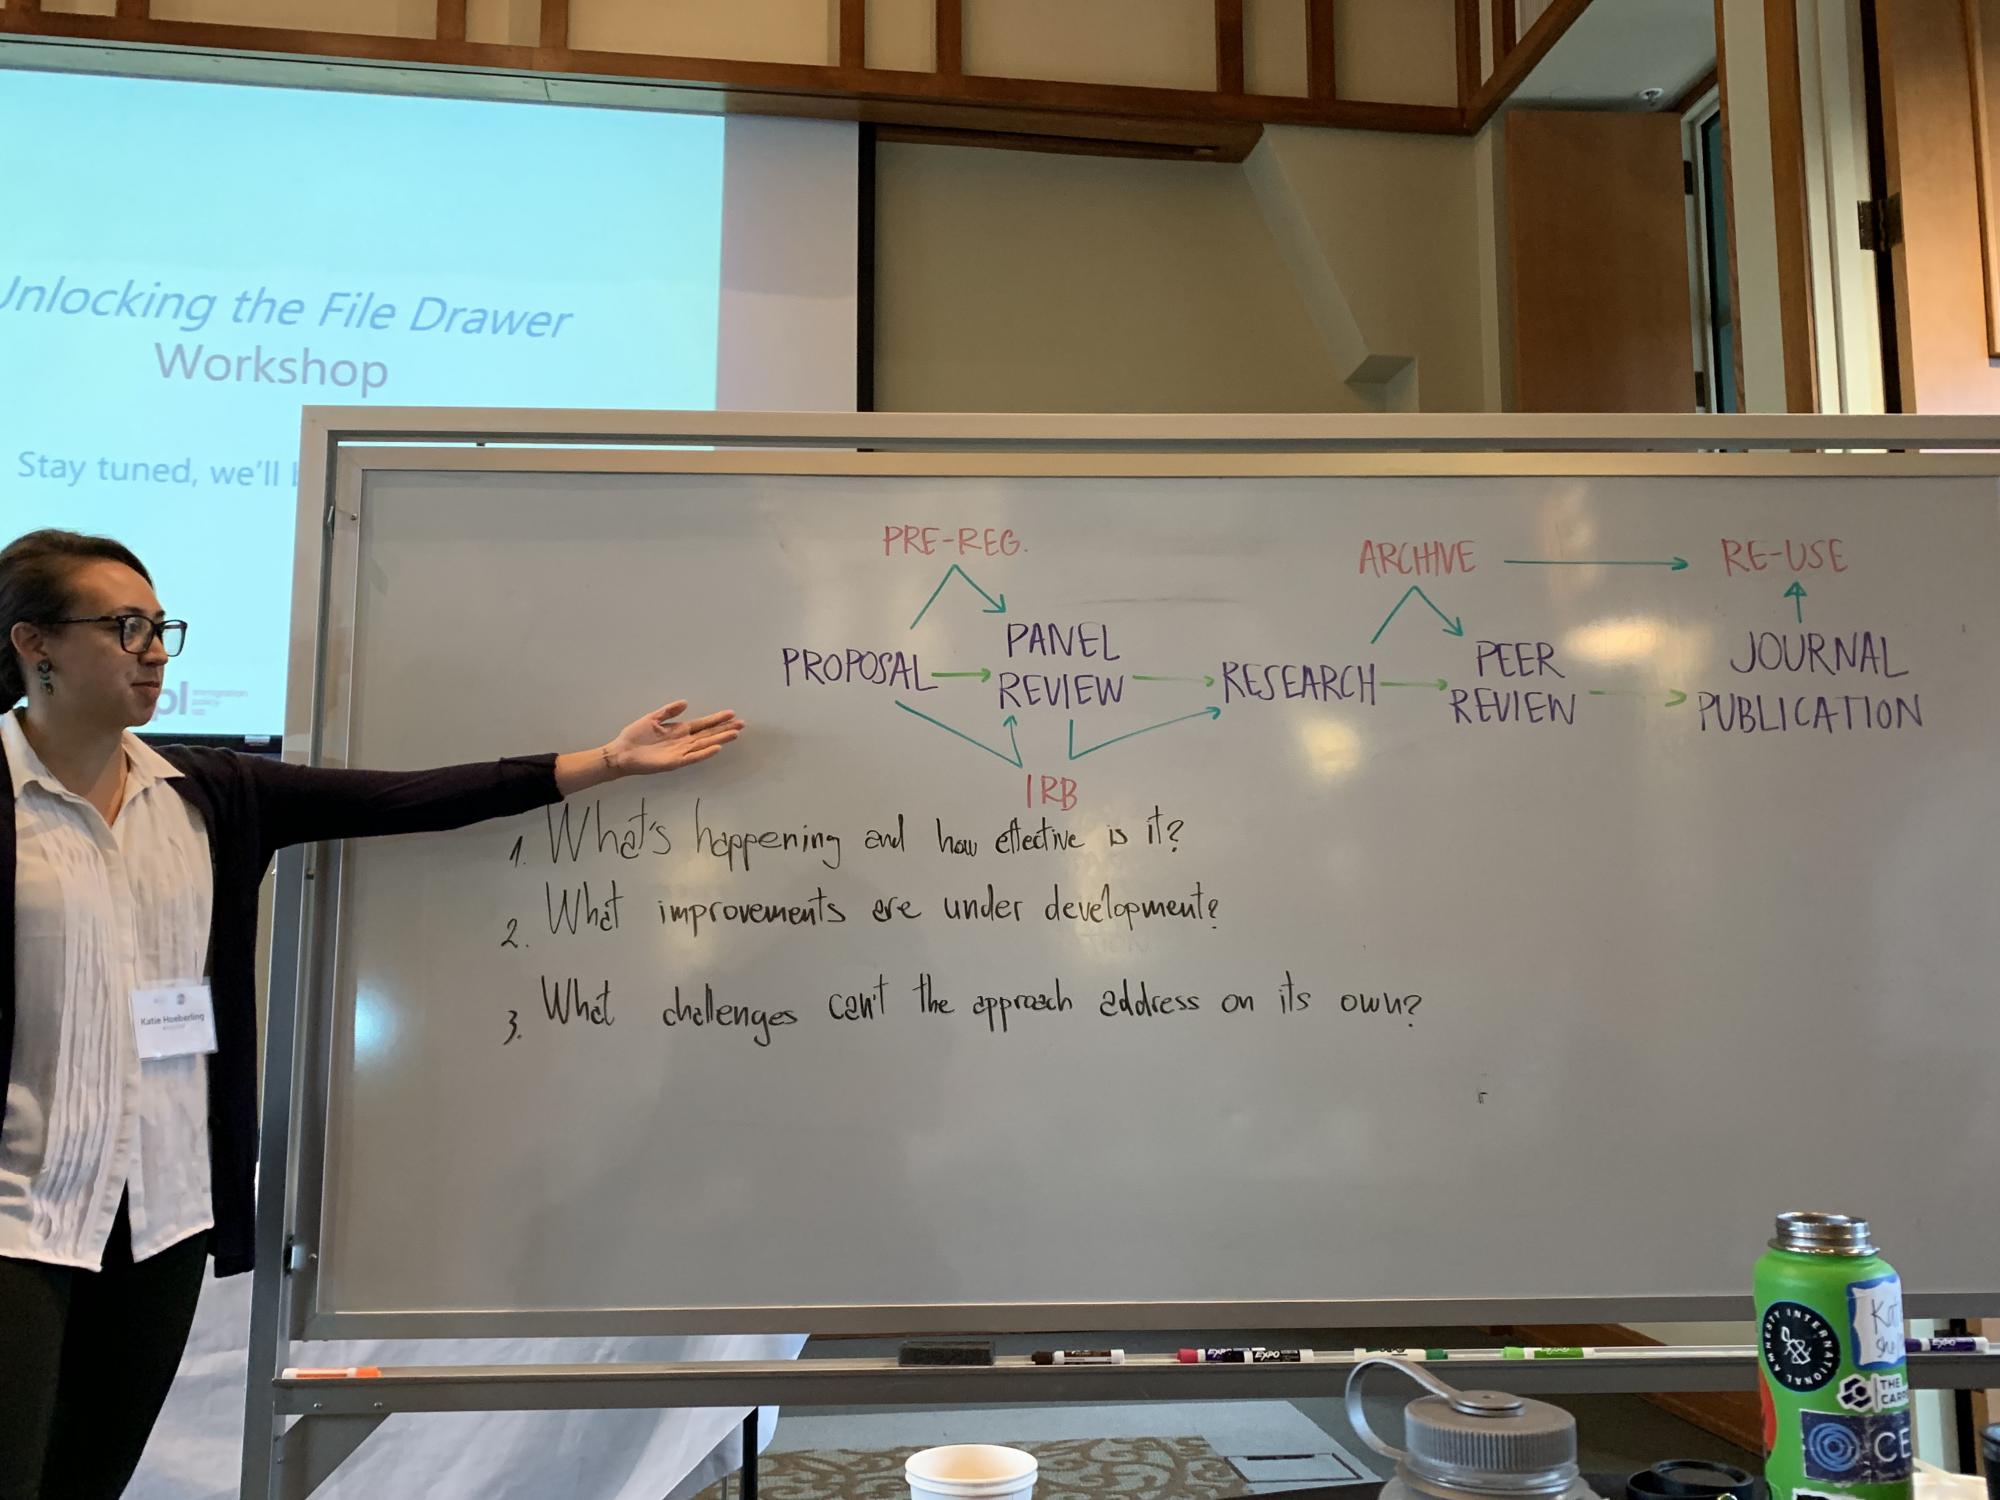 Unlocking the File Drawer
Workshop
Stay tuned, we'll
pl immigration policy lab
PRE-REG.
ARCHIVE
RE-USE
PROPOSAL
PANEL
REVIEW
RESEARCH
PEER
REVIEW
JOURNAL
PUBLICATION
IRB
1. What's happening and how effective is it?
2. What improvements are under development?
3. What challenges can't the approach address on its own?
Katie Hoeberling
EXPO
EXPO
EXPO
AMNESTY INTERNATIONAL
THE
CE